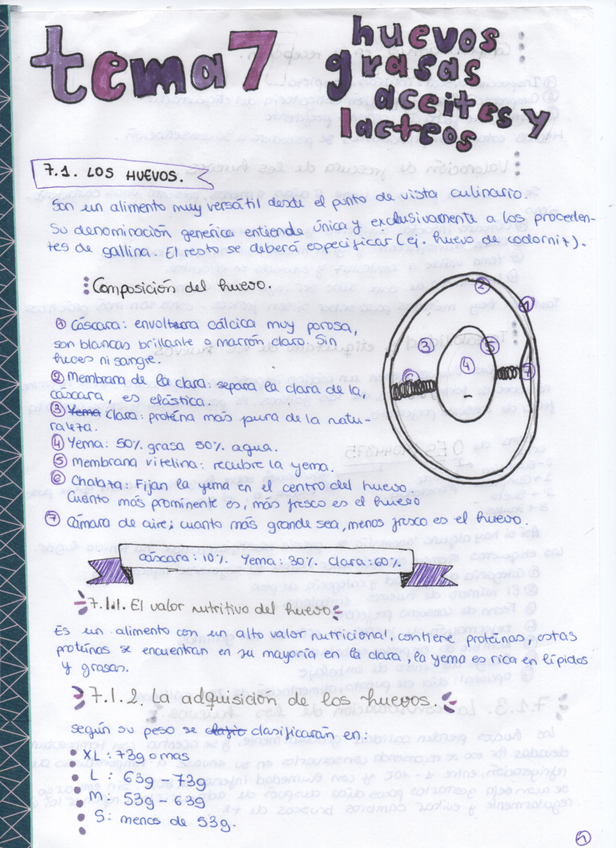 tema 7
huevos
grasas
aceites y
lacteos
7.1. LOS HUEVOS.
Son un alimento muy versátil desde el punto de vista culinario.
Su denominación genérica entiende única y exclusivamente a los proceden-
tes de gallina. El resto se deberá especificar (ej. huevo de codorniz).
Composición del huevo.
① Cáscara: envoltura cálcica muy porosa,
son blancas brillante o marrón claro. Sin
heces ni sangre.
② Membrana de la clara: separa la clara de la
cáscara, es elástica.
③ Yema clara: proteína más pura de la natu-
raleza.
④ Yema: 50% grasa 50% agua.
⑤ Membrana vitelina: recubre la yema.
⑥ Chalaza: Fijan la yema en el centro del huevo.
Cuánto más prominente es, más fresco es el huevo
⑦ Cámara de aire; cuanto más grande sea, menos fresco es el huevo.
1
2
3
4
5
6
7
cáscara: 10% Yema: 30% Clara: 60%
7.1.1. El valor nutritivo del huevo
Es un alimento con un alto valor nutricional, contiene proteínas, estas
proteínas se encuentran en su mayoría en la clara, la yema es rica en lípidos
y grasas.
7.1.2. La adquisición de los huevos.
según su peso se clasificarán en:
XL: 73g o mas
L: 63g - 73g
M: 53g - 63g
S: menos de 53g.
1